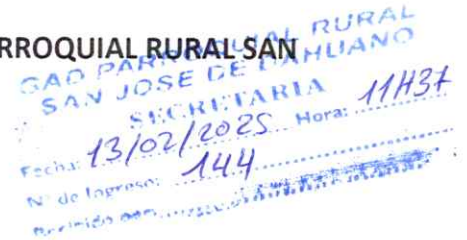 RROQUIAL RURAL SAN
GAD PARROQUIAL RURAL
SAN JOSE DE DAHUANO
SECRETARIA
Fecha: 13/02/2025 Hora: 11H37
N° de Ingreso: 144
Recibido por: